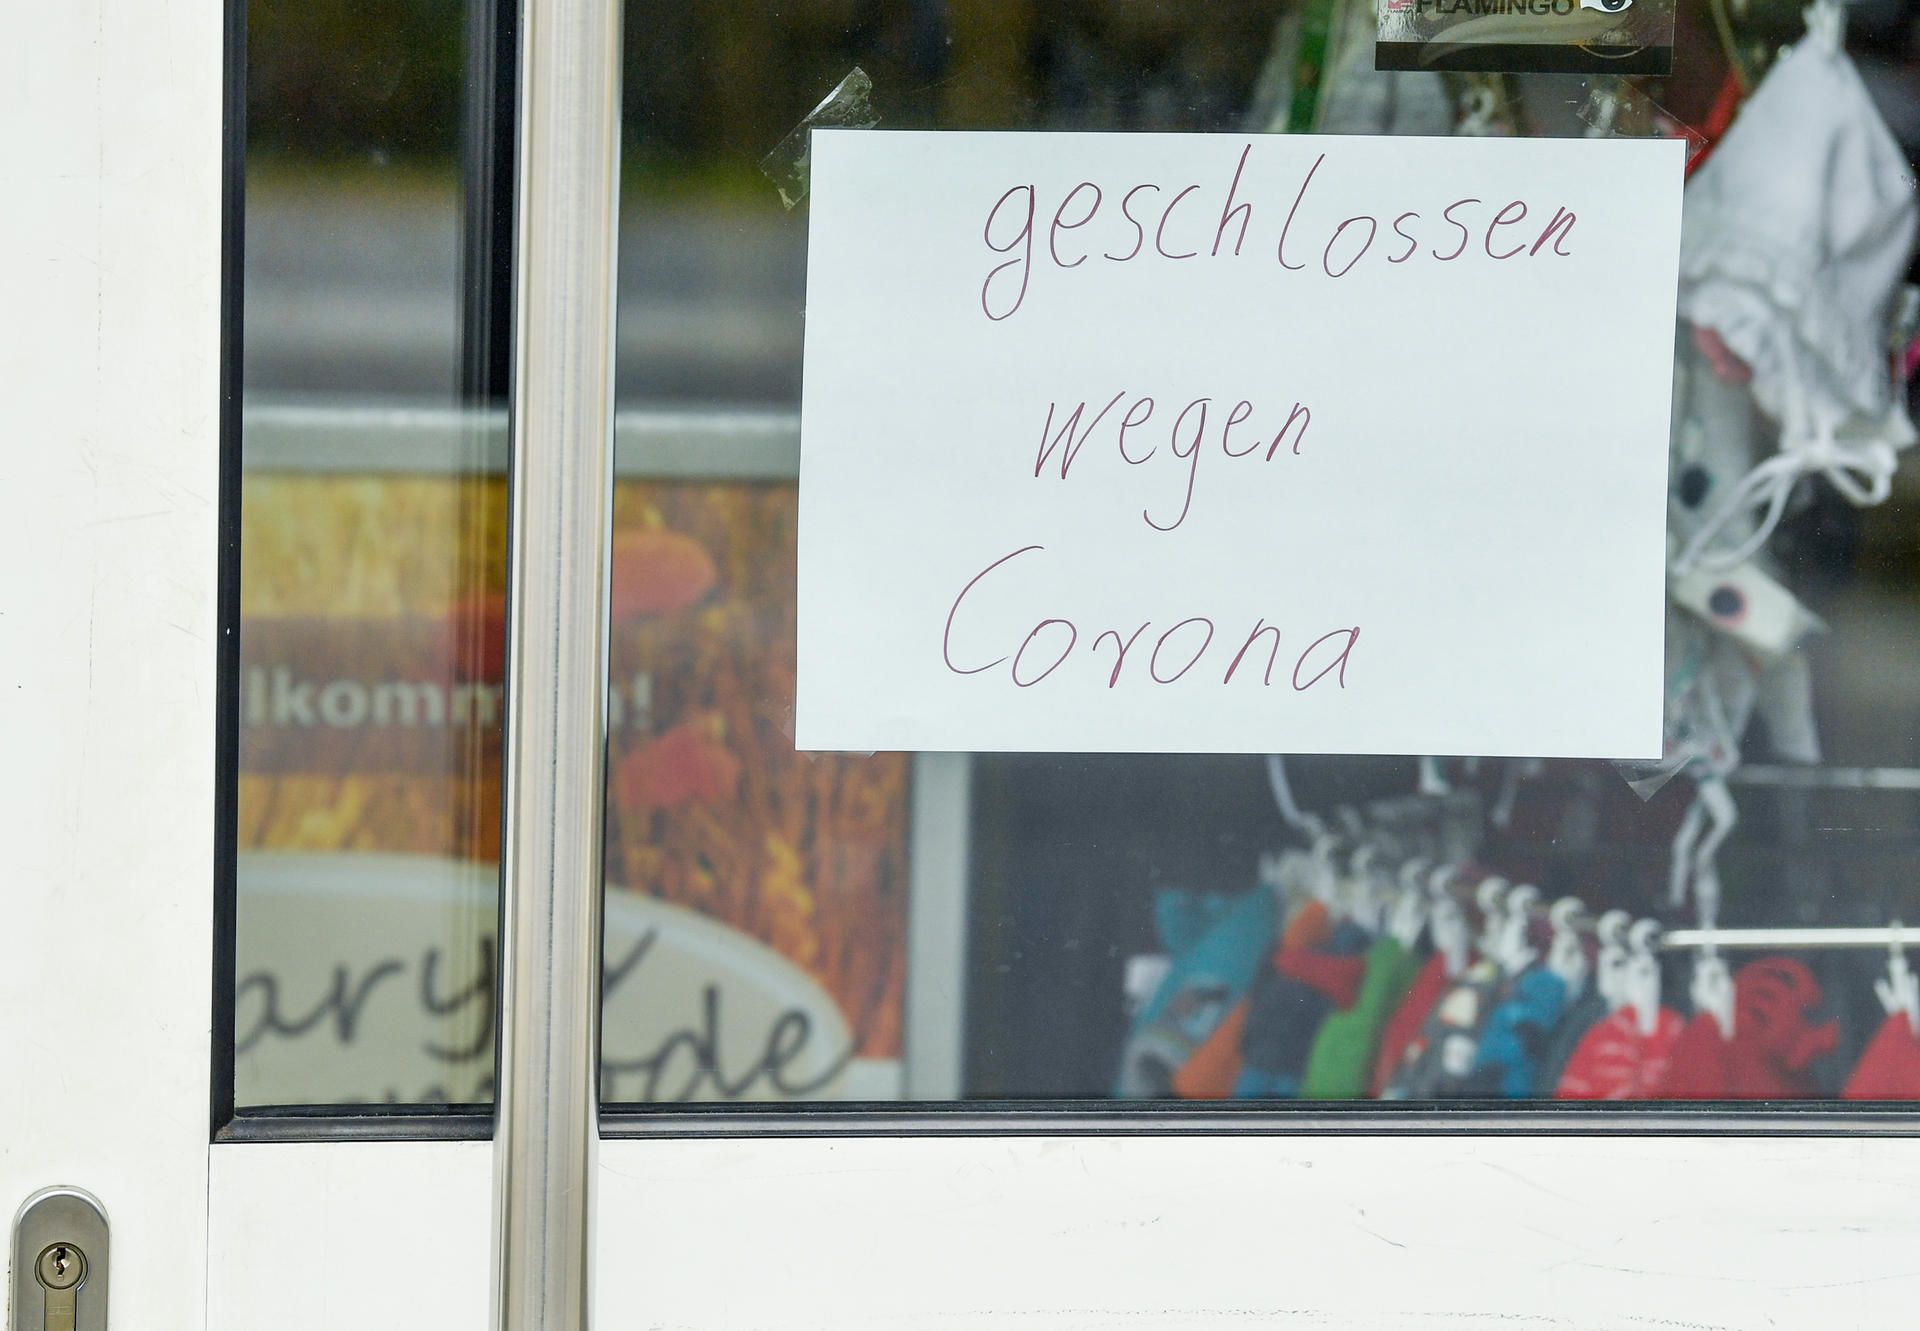 FLAMINGO
geschlossen
wegen
Corona
lkomm !
ary
de